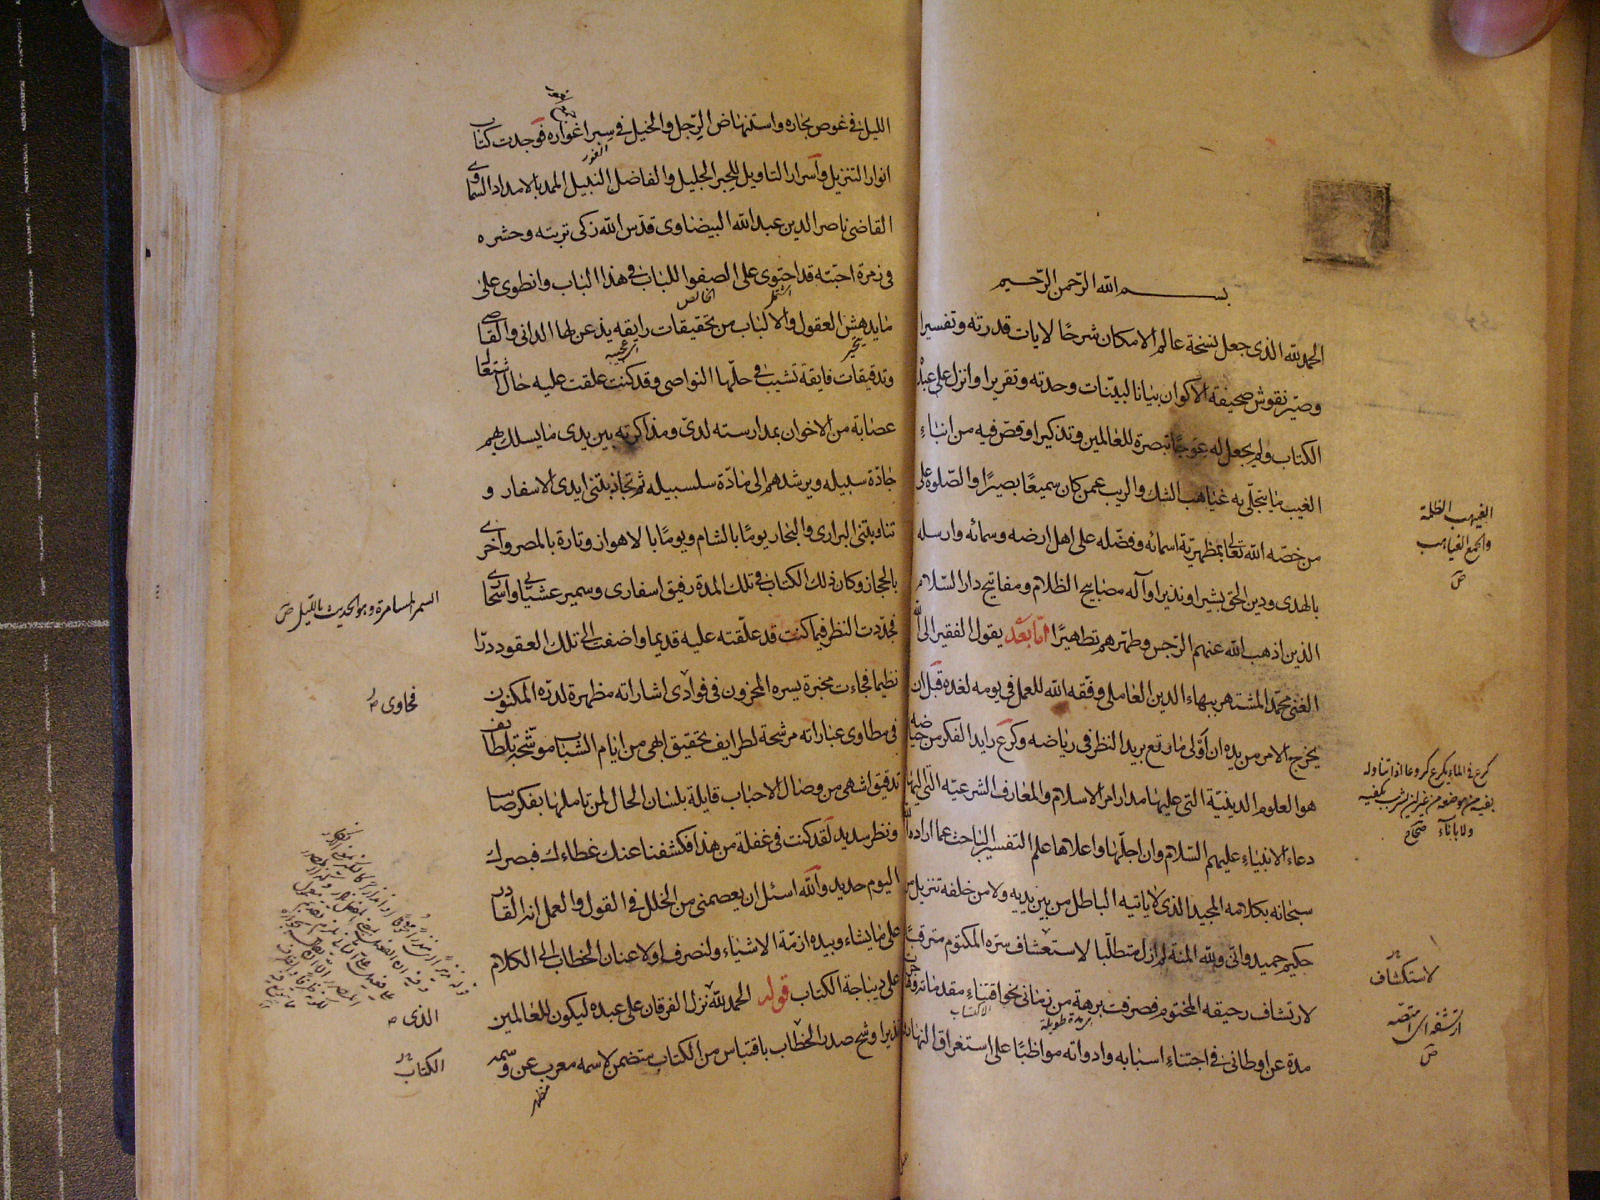 بسم الله الرحمن الرحيم
الحمد لله الذى جعل نسخة عالم الامكان شرحا لايات قدرته وتفسيرا
وصيّر نقوش صحيفة الاكوان بيانا لبيّنات وحدته وتقريرا وانزل على عبده
الكتاب ولم يجعل له عوجًا تبصرة للعالمين وتذكيرا وقص فيه من انباء
الغيب ما يتجلّى به غياهب الشك والريب عمن كان سميعًا بصيرًا والصّلوة على
من خصّه الله تعالى بمظهريّة اسمائه وفضّله على اهل ارضه وسمائه وارسله
بالهدى ودين الحق بشيرا ونذيرا وآله مصابيح الظلام ومفاتيح دار السّلام
الذين اذهب الله عنهم الرّجس وطهّرهم تطهيرًا امّا بعد يقول الفقير الى الله
الغنى محمّد المشتهر ببهاء الدين العاملى وفّقه الله للعمل فى يومه لغده قبل ان
يخرج الامر من يده ان أولى ما رتع بريد النظر فى رياضه وكرع رايد الفكر من حياضه
هو العلوم الدينيّة التى عليها مدار امر الاسلام والمعارف الشرعيّه التى اليها
دعاء الانبياء عليهم السّلام وان اجلّها واعلاها علم التفسير الباحث عما اراده الله
سبحانه بكلامه المجيد الذى لا ياتيه الباطل من بين يديه ولا من خلفه تنزيل من
حكيم حميد وانى ولله المنة لم ازل متطلّبا لاستكشاف سرّه المكتوم مترقبًا
لارتشاف رحيقه المختوم فصرفت برهة من زمانى نحو اقتناء مقدماته
مدة عن اوطانى فى اجتناء اسبابه وادواته مواظبًا على استغراق النهار و
الغيهب الظلمة
والجمع الغياهب
ص
كرع فى الماء يكرع كروعا اذا تناوله
بفيه من موضعه من غير ان يشرب بكفيه
ولا باناء صحاح
لاستكشاف
ارتشفه اى امتصّه
ص
مدة طويلة
الاكتساب
الليل فى غوص بحاره واستنهاض الرّجل والخيل فى سبر اغواره فوجدت كتاب
انوار التنزيل واسرار التاويل للحبر الجليل والفاضل النبيل الممد بالامداد السّماوى
القاضى ناصر الدين عبد الله البيضاوى قدّس الله زكى تربته وحشره
فى زمرة احبّته قد احتوى على الصفو اللباب فى هذا الباب وانطوى على
ما يدهش العقول والالباب من تحقيقات رايقه يذعن لها الدانى والقاصى
وتدقيقات فايقة تشيب فى حلّها النواصى وقد كنت علقت عليه حال اشتغال
عصابة من الاخوان بمدارسته لدى ومذاكرته بين يدى ما يسلك بهم
جادّة سبيله ويرشدهم الى مادّة سلسبيله ثم تجاذبتنى ايدى الاسفار و
تناوبتنى البرارى والبحار يومًا بالشام ويومًا بالاهواز وتارة بالمصر واخرى
بالحجاز وكان ذلك الكتاب فى تلك المدة رفيق اسفارى وسمير عشيّاتى واسحارى
فجدّدت النظر فيما كنت قد علّقته عليه قديما واضفت الى تلك العقود درّا
نظيما فجاءت مخبرة بسره المخزون فى فوادى اشاراته مظهرة لدرّه المكنون
فى مطاوى عباراته مرشحة لطرايف تحقيق ابهى من ايام الشباب موشّحة بلطائف
تدقيق اشهى من وصال الاحباب قايلة بلسان الحال لمن تاملها بفكر صائب
ونظر سديد لقد كنت فى غفلة من هذا فكشفنا عنك غطاءك فبصرك
اليوم حديد والله اسئل ان يعصمنى من الخلل فى القول والعمل انه القادر
على ما يشاء وبيده ازمّة الاشياء ولنصرف اولا عنان الخطاب الى الكلام
على ديباجة الكتاب قوله الحمد لله نزل الفرقان على عبده ليكون للعالمين
نذيرا وشح صدر الخطاب باقتباس من الكتاب متضمن لاسمه معرب عن وسمه
الغور
الخالص
السمر المسامرة وهو الحديث بالليل ص
فحاوى
الذى
الكتاب